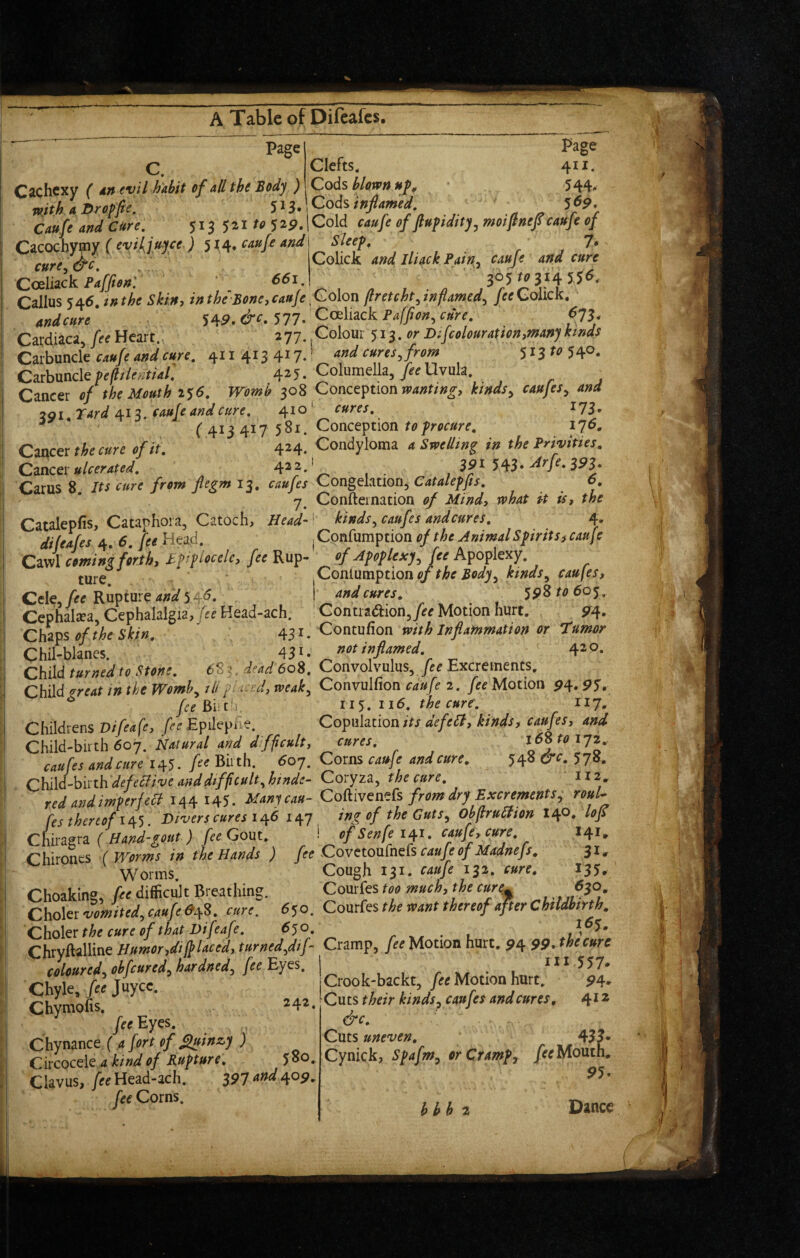 A Table of Diſeaſes.
Page
C.
Cachexy ( an evil habit of all the Body )
with a Dropſie. 513.
Cauſe and Cure. 513 521 to 529.
Cacochymy ( evil juyce ) 514. cauſe and
cure, &c.
Cœliack Paſſion. 661.
Callus 546. in the Skin, in the Bone, cauſe
and cure 549. &c. 577.
Cardiaca, ſee Heart. 277.
Carbuncle cauſe and cure. 411 413 417.
Carbuncle peſtilential. 425.
Cancer of the Mouth 256. Womb 308
391. Yard 413. cauſe and cure. 410
( 413 417 581.
Cancer the cure of it. 424.
Cancer ulcerated. 422.
Carus 8. Its cure from flegm 13. cauſes
7.
Catalepſis, Cataphora, Catoch, Head-
diſeaſes 4. 6. ſee Head.
Cawl coming forth, Epiplocele, ſee Rup-
ture.
Cele, ſee Rupture and 546.
Cephalæa, Cephalalgia, ſee Head-ach.
Chaps of the Skin. 431.
Chil-blanes. 431.
Child turned to Stone. 683. dead 608.
Child great in the Womb, ill placed, weak,
ſee Birth.
Childrens Diſeaſe, ſee Epilepſie.
Child-birth 607. Natural and difficult,
cauſes and cure 145. ſee Birth. 607.
Child-birth defective and difficult, hinde-
red and imperfect 144 145. Many cau-
ſes thereof 145. Divers cures 146 147
Chiragra ( Hand-gout ) ſee Gout.
Chirones ( Worms in the Hands ) ſee
Worms.
Choaking, ſee difficult Breathing.
Choler vomited, cauſe 648. cure. 650.
Choler the cure of that Diſeaſe. 650.
Chryſtalline Humor, diſplaced, turned, diſ-
coloured, obſcured, hardned, ſee Eyes.
Chyle, ſee Juyce.
Chymoſis. 242.
ſee Eyes.
Chynance ( a ſort of Quinzy )
Circocele a kind of Rupture. 580.
Clavus, ſee Head-ach. 397 and 409.
ſee Corns.
Page
Clefts. 411.
Cods blown up. 544.
Cods inflamed. 569.
Cold cauſe of ſtupidity, moiſtneſs cauſe of
Sleep. 7.
Colick and Iliack Pain, cauſe and cure
305 to 314 556.
Colon ſtretcht, inflamed, ſee Colick.
Cœliack Paſſion, cure. 673.
Colour 513. or Diſcolouration, many kinds
and cures, from 513 to 540.
Columella, ſee Uvula.
Conception wanting, kinds, cauſes, and
cures. 173.
Conception to procure. 176.
Condyloma a Swelling in the Privities.
391 543. Arſe. 393.
Congelation, Catalepſis. 6.
Conſternation of Mind, what it is, the
kinds, cauſes and cures. 4.
Conſumption of the Animal Spirits, cauſe
of Apoplexy, ſee Apoplexy.
Conſumption of the Body, kinds, cauſes,
and cures. 598 to 605.
Contraction, ſee Motion hurt. 94.
Contuſion with Inflammation or Tumor
not inflamed. 420.
Convolvulus, ſee Excrements.
Convulſion cauſe 2. ſee Motion 94. 95.
115. 116. the cure. 117.
Copulation its defect, kinds, cauſes, and
cures. 168 to 172.
Corns cauſe and cure. 548 &c. 578.
Coryza, the cure. 112.
Coſtiveneſs from dry Excrements, roul-
ing of the Guts, Obſtruction 140. loſs
of Senſe 141. cauſe, cure. 141.
Covetouſneſs cauſe of Madneſs. 31.
Cough 131. cauſe 132. cure. 135.
Courſes too much, the cure. 630.
Courſes the want thereof after Childbirth.
165.
Cramp, ſee Motion hurt. 94 99. the cure
111 557.
Crook-backt, ſee Motion hurt. 94.
Cuts their kinds, cauſes and cures, 412
&c.
Cuts uneven. 433.
Cynick, Spaſm, or Cramp, ſee Mouth.
95.
b b b 2 Dance